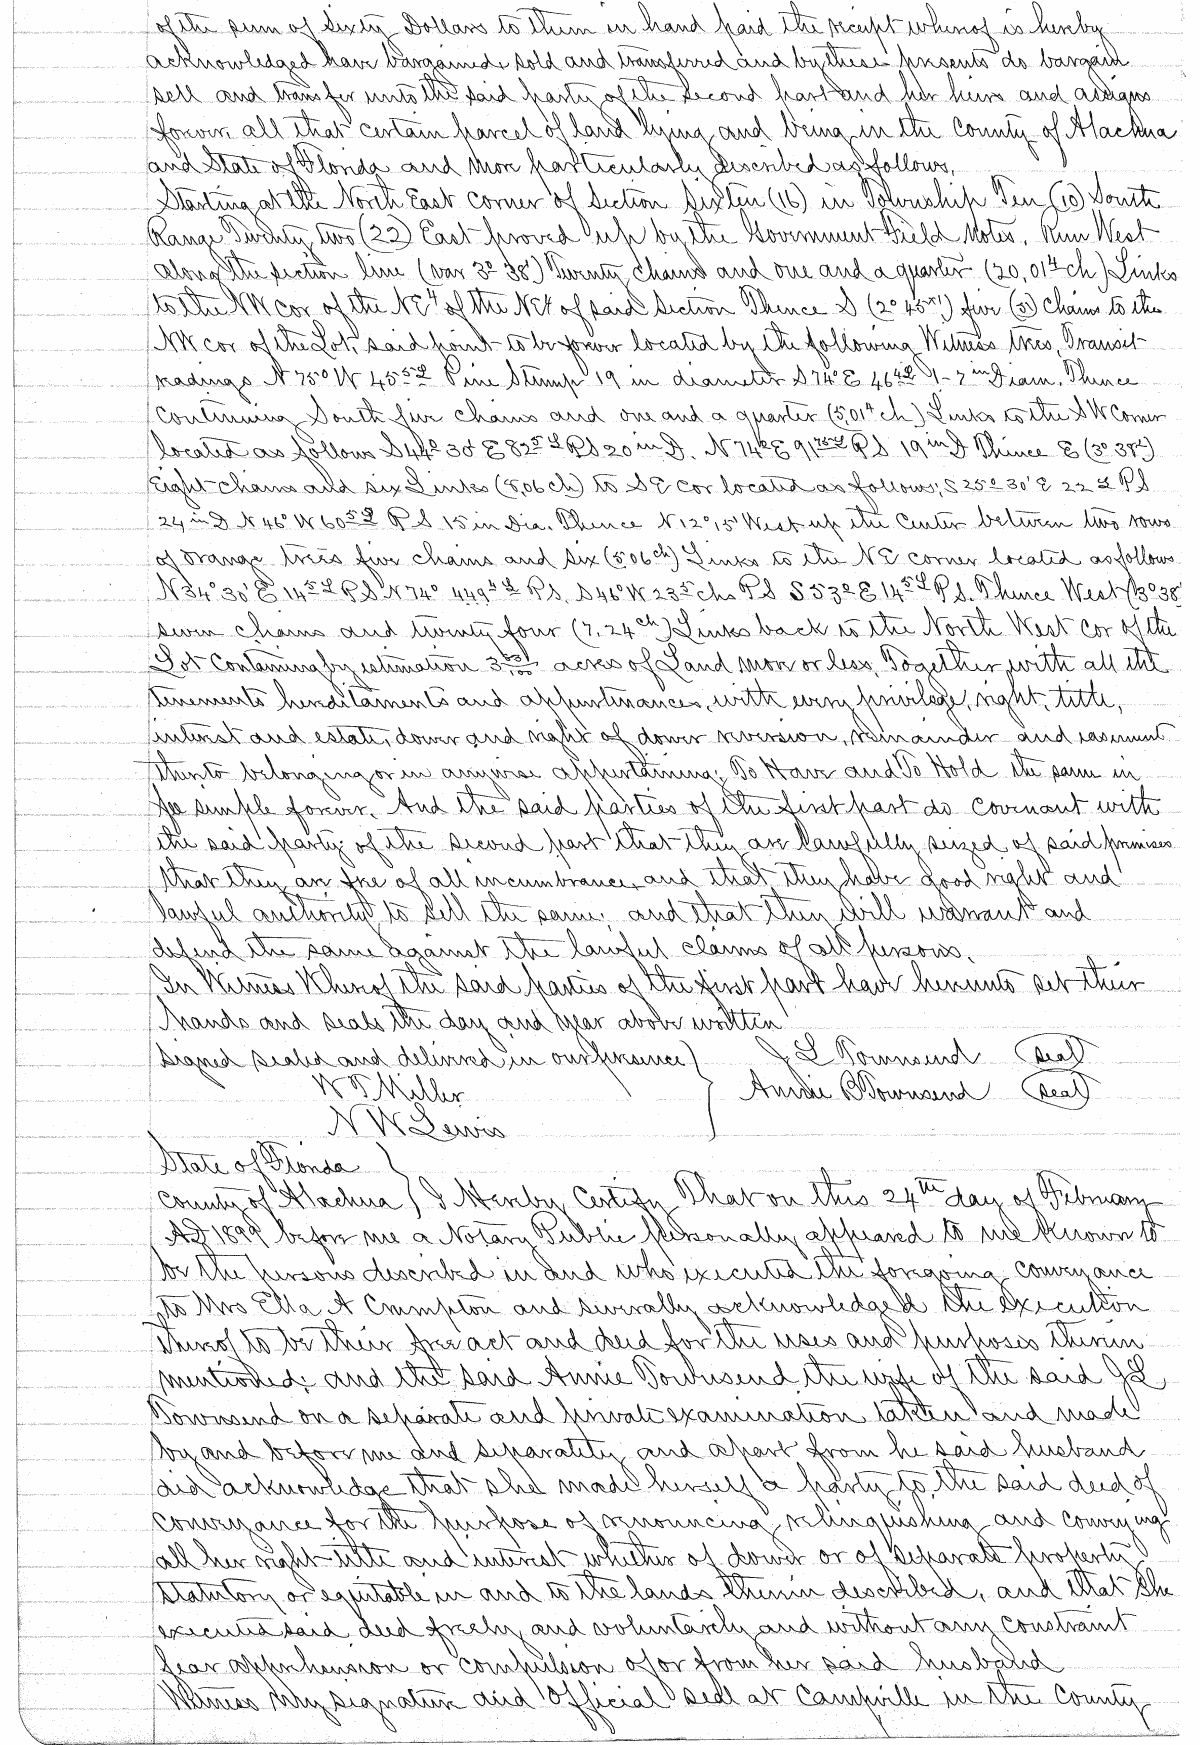 of the sum of Sixty Dollars to them in hand paid the receipt whereof is hereby
acknowledged have bargained, sold and transferred and by these presents do bargain
sell and transfer unto the said party of the second part and her heirs and assigns
forever all that certain parcel of land lying and being in the County of Alachua
and State of Florida and more particularly described as follows,
Starting at the North East corner of Section Sixteen (16) in Township Ten (10) South
Range Twenty two (22) East proved up by the Government Field Notes. Run West
along the section line (var 3° 38') Twenty chains and one and a quarter (20,01¼ ch) Links
to the NW cor of the NE¼ of the NE¼ of said Section Thence S (2° 45') five (5) Chains to the
NW cor of the Lot, said point to be forever located by the following Witness trees, Transit
readings N 75° W 45 Pine Stump 19 in diameter S 74° E 46 7 in Diam. Thence
Continuing South five chains and one and a quarter (5,01¼ ch) Links to the SW Corner
located as follows S44° 30' E 82 PS 20 in D. N 74° E 91 PS 19 in D Thence E (3° 38')
Eight Chains and six Links (8,06 ch) to SE cor located as follows; S 25° 30' E 22 PS
24 in D N 46° W 60 PS 15 in Dia. Thence N 12° 15' West up the Center between two rows
of orange trees five chains and six (5,06 ch) Links to the NE corner located as follows
N 34° 30' E 14 PS N 74° PS. S 46° W 23 chs PS S 53° E 14 PS. Thence West (3° 38'
seven chains and twenty four (7,24 ch) Links back to the North West cor of the
Lot Containing by estimation 3 acres of Land more or less, Together with all the
tenements hereditaments and appurtenances, with every privilege, right, title,
interest and estate, dower and right of dower reversion, remainder and easement
thereto belonging or in anywise appertaining; To Have and To Hold the same in
fee simple forever. And the said parties of the first part do covenant with
the said party of the second part that they are lawfully seized of said premises
that they are free of all incumbrance, and that they have good right and
lawful authority to sell the same; and that they will warrant and
defend the same against the lawful claims of all persons.
In Witness Whereof the said parties of the first part have hereunto set their
hands and seals the day and year above written
Signed sealed and delivered in our presence } J L Townsend (seal)
W T Miller Annie B Townsend (seal)
N W Lewis
State of Florida
County of Alachua } I Hereby Certify That on this 24th day of February
AD 1899 before me a Notary Public personally appeared to me known to
be the persons described in and who executed the foregoing conveyance
to Mrs Ella A Crumpton and severally acknowledged the execution
thereof to be their free act and deed for the uses and purposes therein
mentioned; and the said Annie Townsend the wife of the said J L
Townsend on a separate and private examination taken and made
by and before me and separately and apart from he said husband
did acknowledge that she made herself a party to the said deed of
conveyance for the purpose of renouncing, relinquishing and conveying
all her right title and interest whether of dower or of separate property
statutory or equitable in and to the lands therein described, and that she
executed said deed freely and voluntarily and without any constraint
fear apprehension or compulsion of or from her said husband
Witness my signature and official seal at Campville in the County